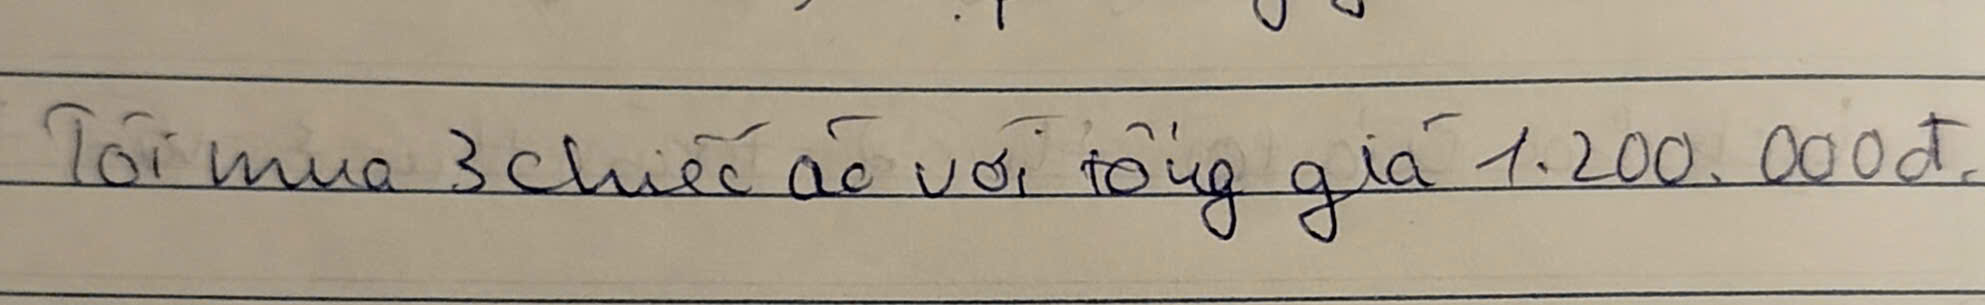 Tôi mua 3 chiếc áo với tổng giá 1.200.000đ.